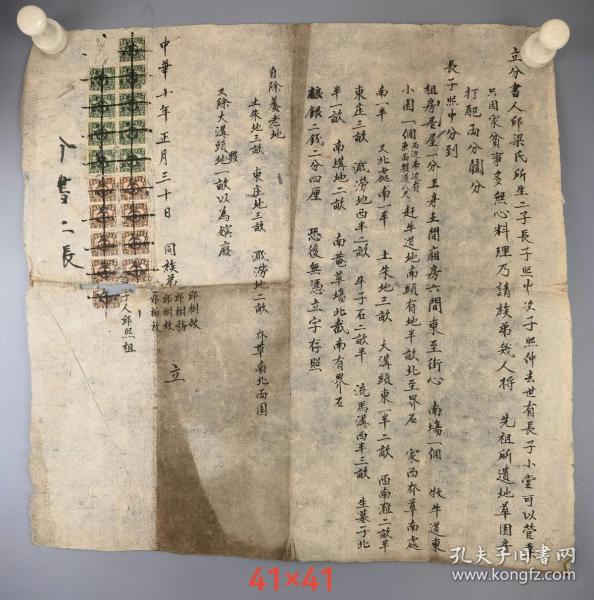 立分書人邱梁氏所生二子長子照中次子照仲去世有長子小堂可以管業
只因家貧事多無心料理乃請族弟幾人將 先祖所遺地草園房
打配両分鬮分
長子照中分到
祖房居屋一分主屋五間廂房六間東至街心 南塲一個 牧牛道東
小園一個 赶牛道地南頭有地半畝北至界石 家西 草南處
南一半 又北處南一半 土朱地三畝 大溝頭東一半二畝 西南灘二畝半
東庄三畝 澇地西半二畝 牛子石二畝半 流馬溝西半三畝 生墓子北
半一畝 南塂地二畝 南菴草塲北截南有界石
粮銀二錢二分四厘 恐後無憑立字存照
自除養老地
土朱地三畝 東庄地三畝 澇地二畝 草南北両園
又除大溝頭地一畝以為殯廢
中華十年正月三十日 同族弟
邱樹
邱樹
邱樹枝
邱柏枝
立
子人邱照祖
介書二長
41×41
孔夫子旧書网
www.kongfz.com